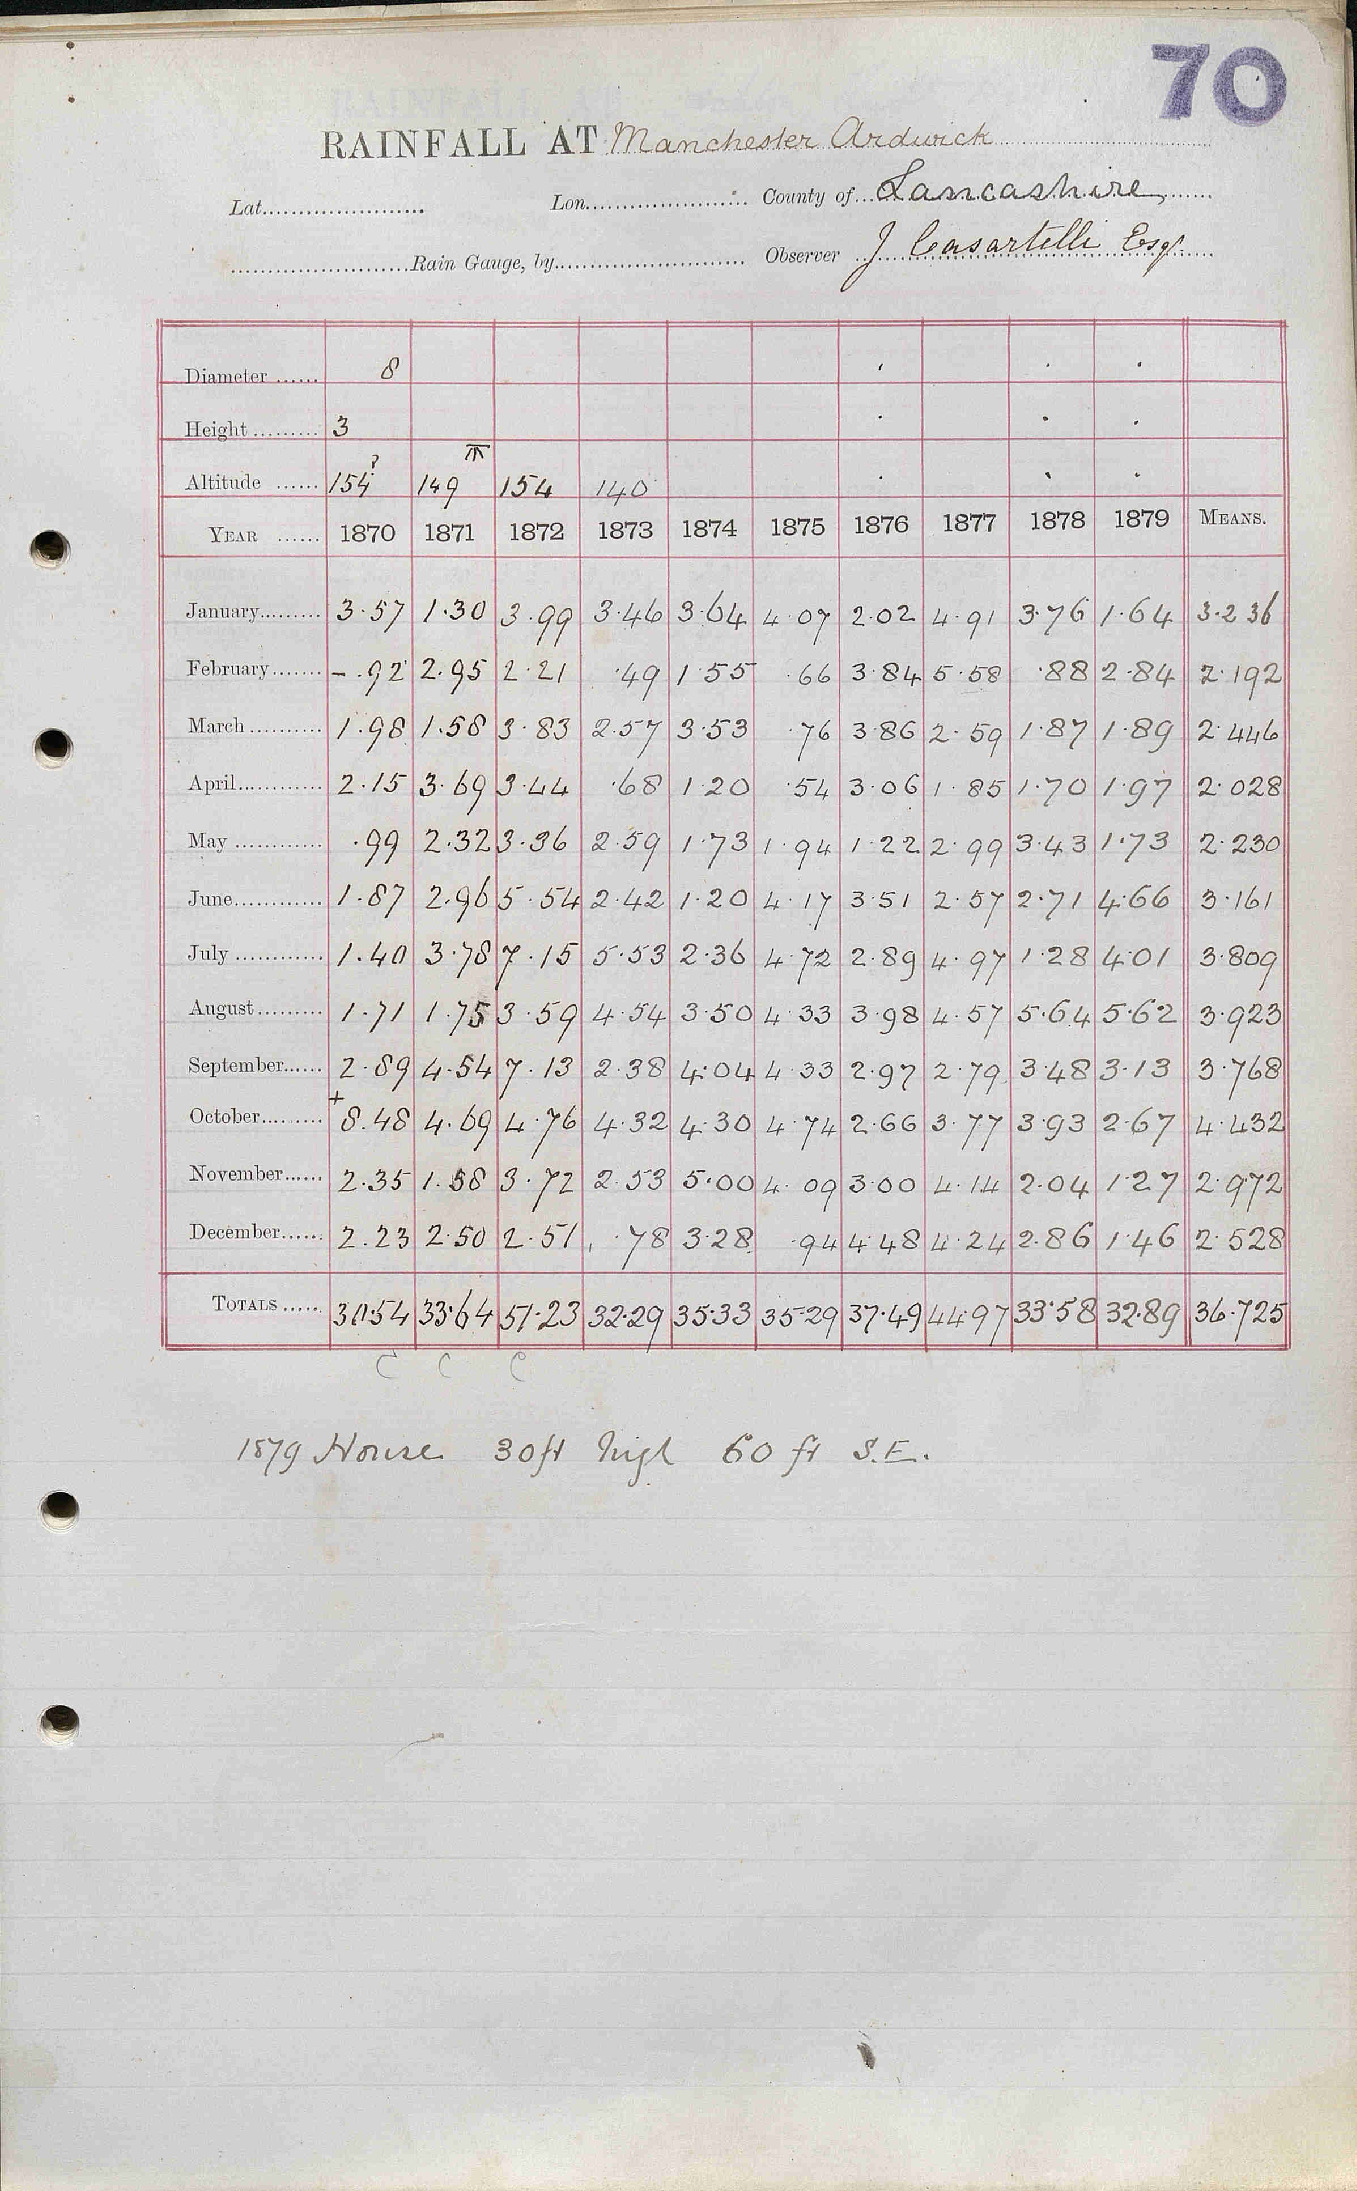 70
RAINFALL AT Manchester Ardwick
Lat. Lon. County of Lancashire
Rain Gauge, by Observer J Casartelli Esqr.
Diameter 8
Height 3
Altitude 154? 149 154 140
YEAR 1870 1871 1872 1873 1874 1875 1876 1877 1878 1879 MEANS.
January 3.57 1.30 3.99 3.46 3.64 4.07 2.02 4.91 3.76 1.64 3.236
February -.92 2.95 2.21 .49 1.55 .66 3.84 5.58 .88 2.84 2.192
March 1.98 1.58 3.83 2.57 3.53 .76 3.86 2.59 1.87 1.89 2.446
April 2.15 3.69 3.44 .68 1.20 .54 3.06 1.85 1.70 1.97 2.028
May .99 2.32 3.36 2.59 1.73 1.94 1.22 2.99 3.43 1.73 2.230
June 1.87 2.96 5.54 2.42 1.20 4.17 3.51 2.57 2.71 4.66 3.161
July 1.40 3.78 7.15 5.53 2.36 4.72 2.89 4.97 1.28 4.01 3.809
August 1.71 1.75 3.59 4.54 3.50 4.33 3.98 4.57 5.64 5.62 3.923
September 2.89 4.54 7.13 2.38 4.04 4.33 2.97 2.79 3.48 3.13 3.768
October +8.48 4.69 4.76 4.32 4.30 4.74 2.66 3.77 3.93 2.67 4.432
November 2.35 1.58 3.72 2.53 5.00 4.09 3.00 4.14 2.04 1.27 2.972
December 2.23 2.50 2.51 .78 3.28 .94 4.48 4.24 2.86 1.46 2.528
TOTALS 30.54 33.64 51.23 32.29 35.33 35.29 37.49 44.97 33.58 32.89 36.725
C C C
1879 House 30ft high 60 ft S.E.